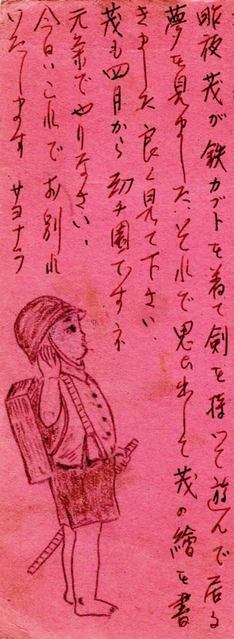 昨夜茂が鉄カブトを着て剣を持って遊んで居る
夢を見ました、それで思ひ出して茂の繪を書
きました良く見て下さい、
茂も四月から幼チ園ですネ
元氣でやりなさい、
今日はこれでお別れ
いたします サヨナラ